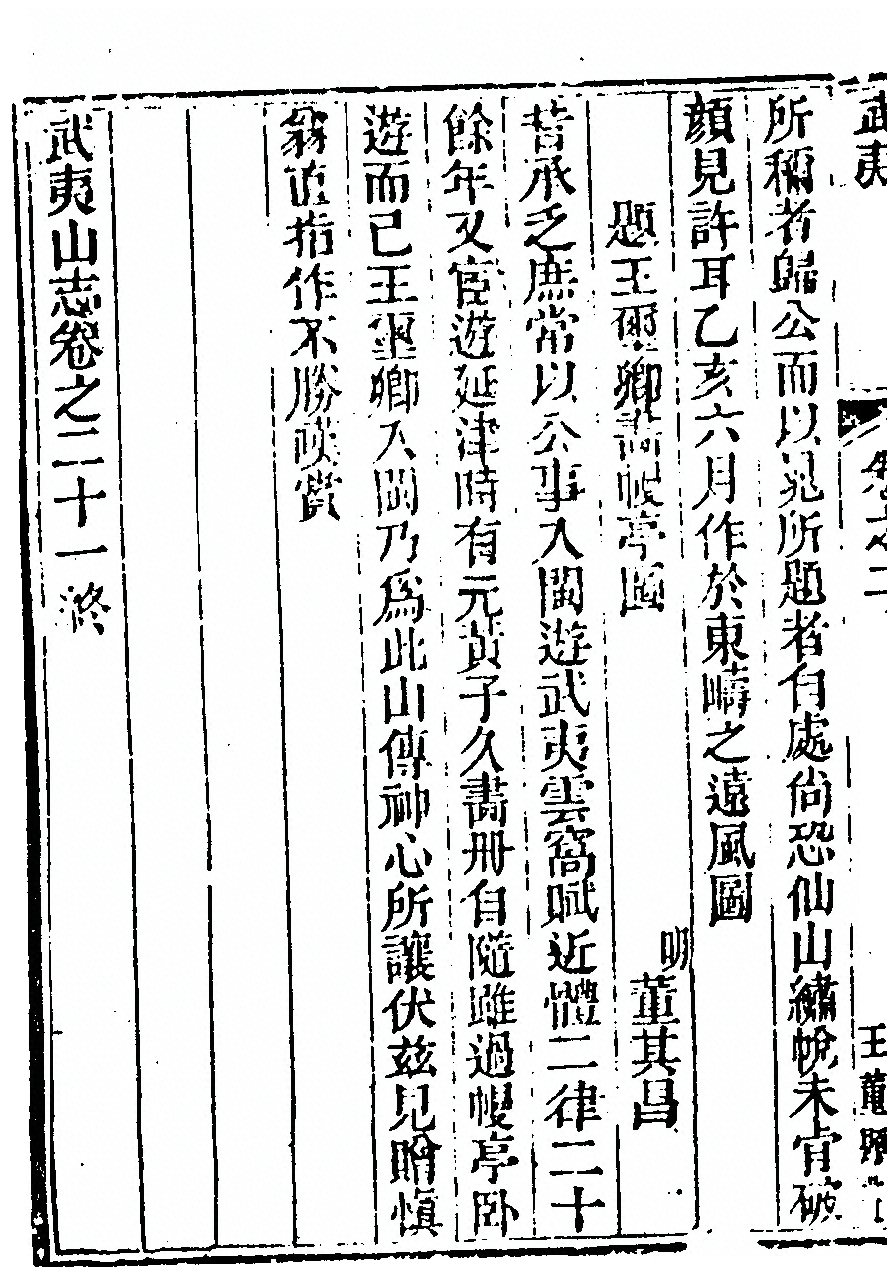 武夷 卷之二 王董題
所稱者歸公而以是所題者自處尚恐仙山繡幌未肯破
顔見許耳乙亥六月作於東疇之遠風圖
題王璽卿畵幔亭圖
明董其昌
昔承乏庶常以公事入閩遊武夷雲窩賦近體二律二十
餘年又宦遊延津時有元黃子久畵册自隨雖過幔亭卧
遊而已王璽卿入閩乃爲此山傳神心所讓伏兹見贈愼
翁直指作不勝嘆賞
武夷山志卷之二十一終